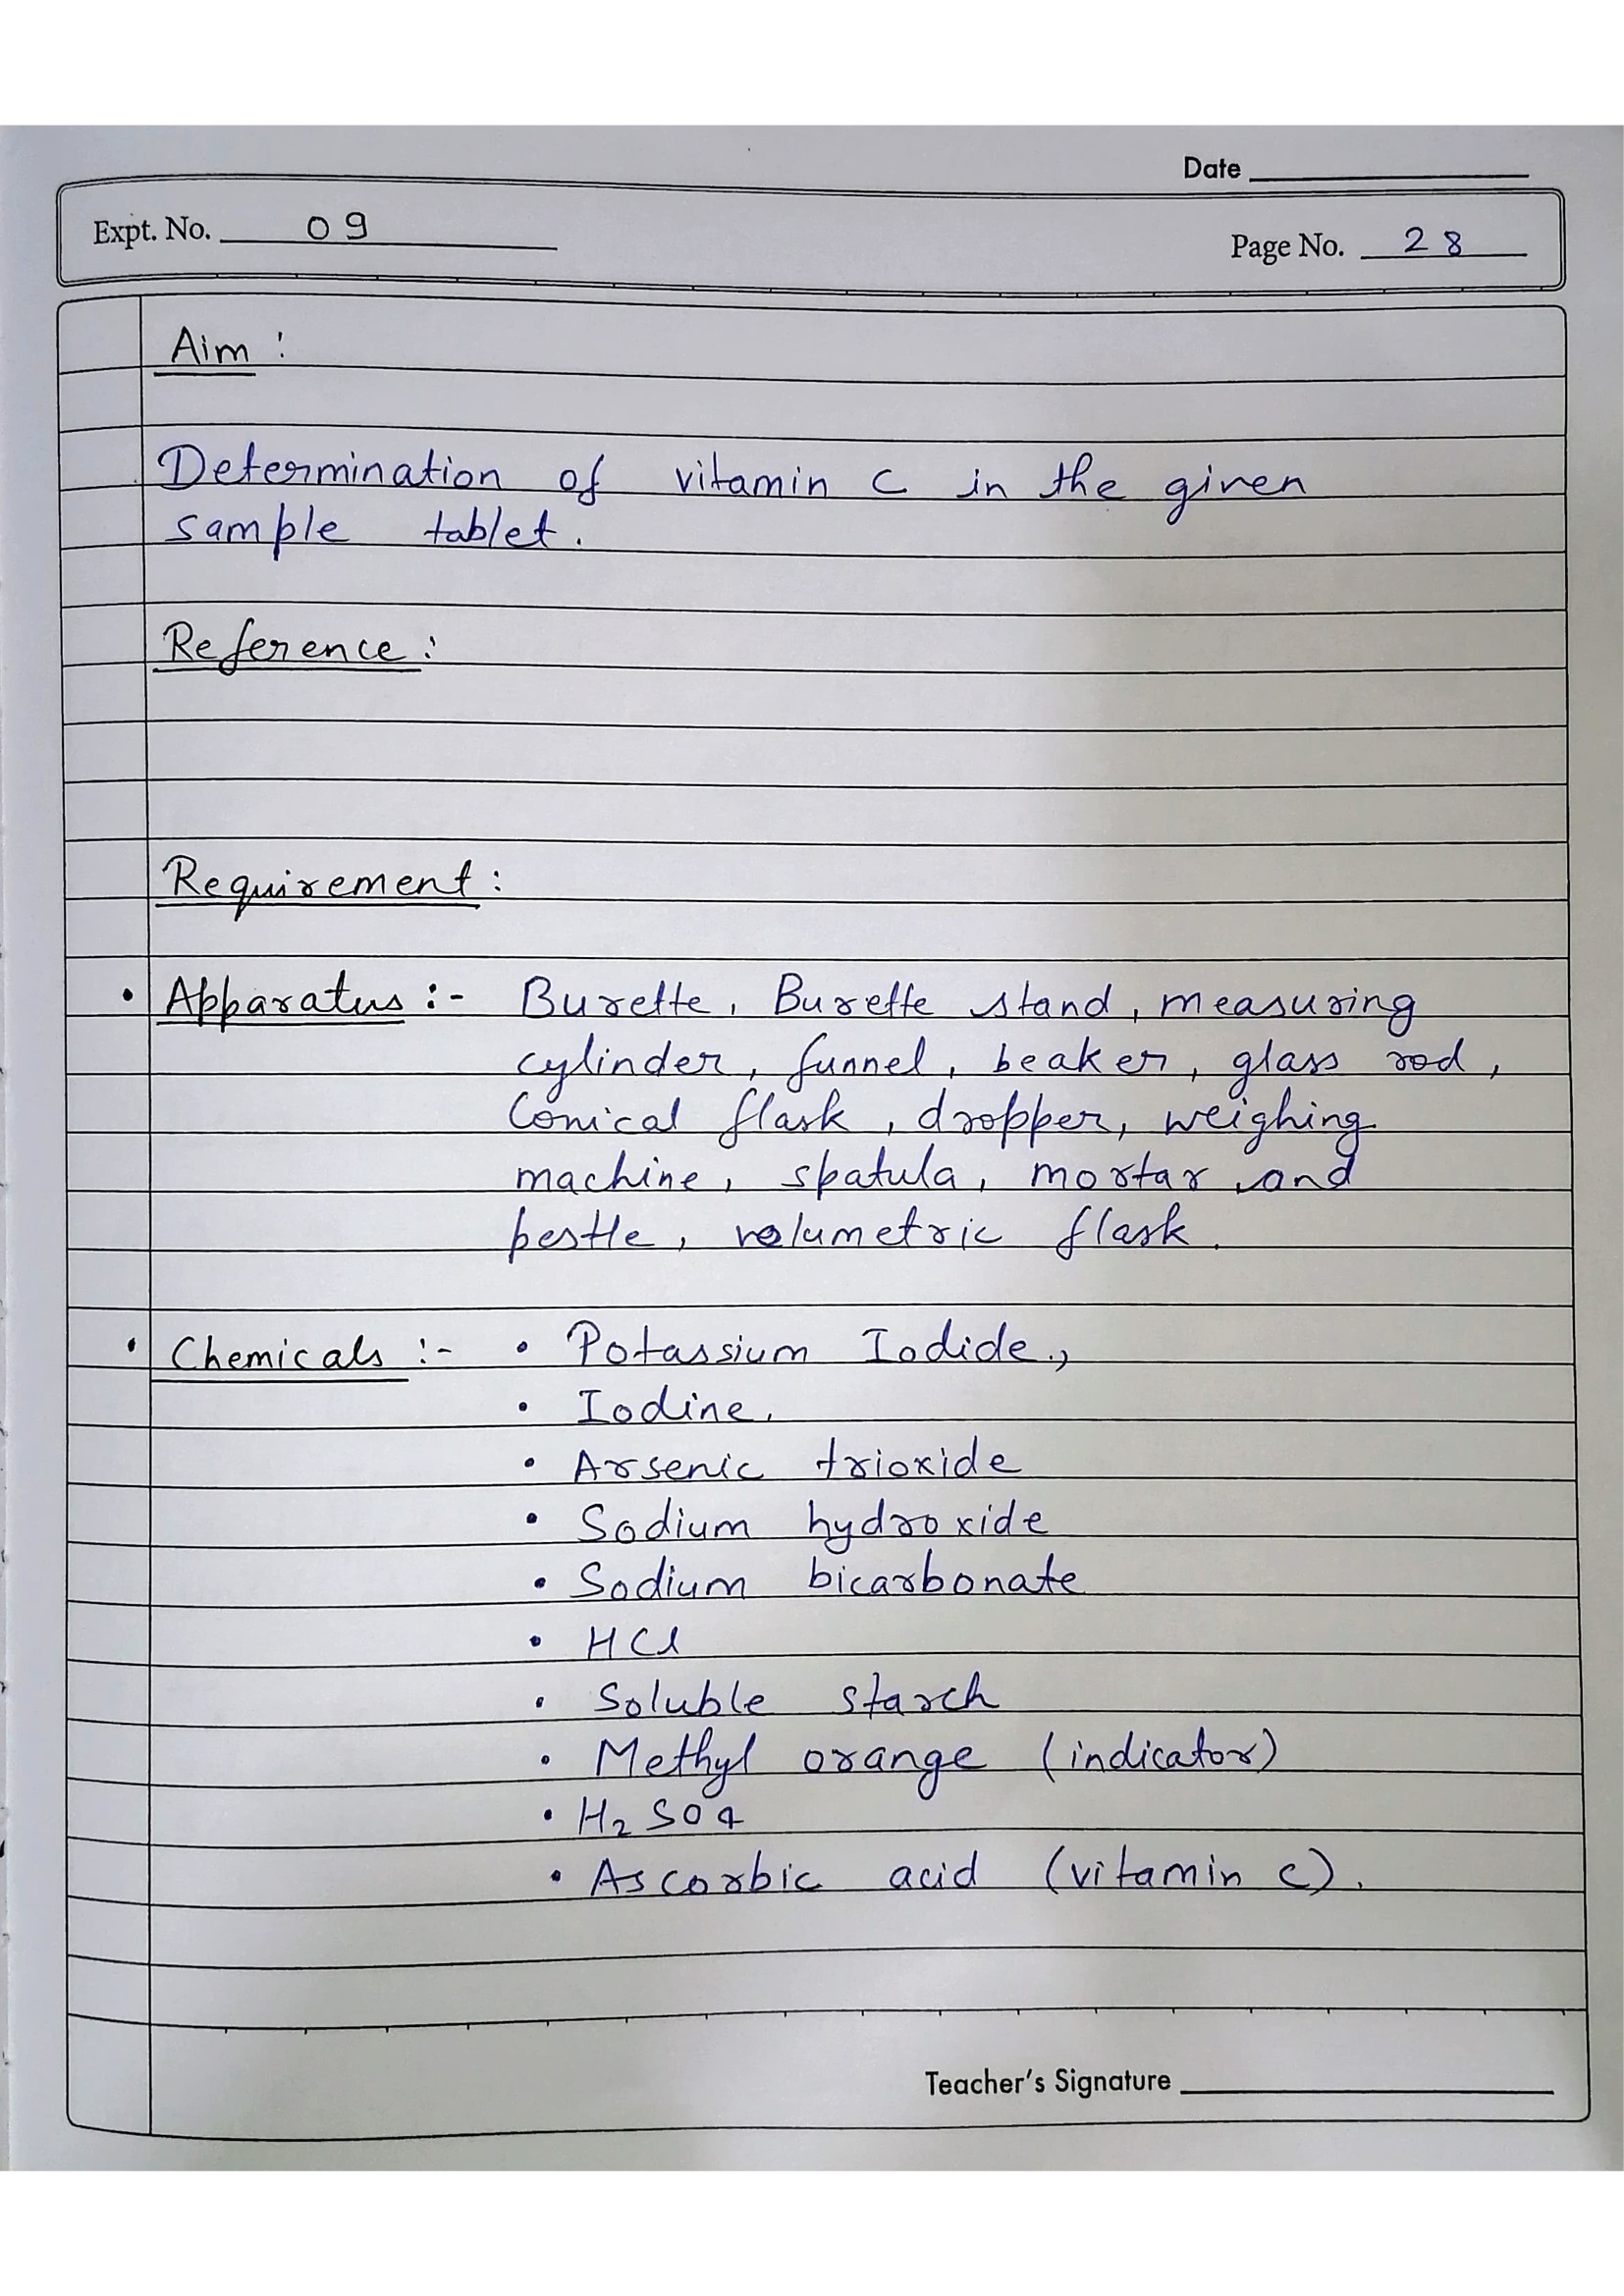 Date
Expt. No. 09
Page No. 28
Aim :
Determination of vitamin C in the given
sample tablet.
Reference :
Requirement :
• Apparatus :- Burette, Burette stand, measuring
cylinder, funnel, beaker, glass rod,
Conical flask, dropper, weighing
machine, spatula, mortar and
pestle, volumetric flask.
• Chemicals :- • Potassium Iodide.,
• Iodine.
• Arsenic trioxide
• Sodium hydroxide
• Sodium bicarbonate
• HCl
• Soluble starch
• Methyl orange (indicator)
• H₂SO4
• Ascorbic acid (vitamin c).
Teacher's Signature